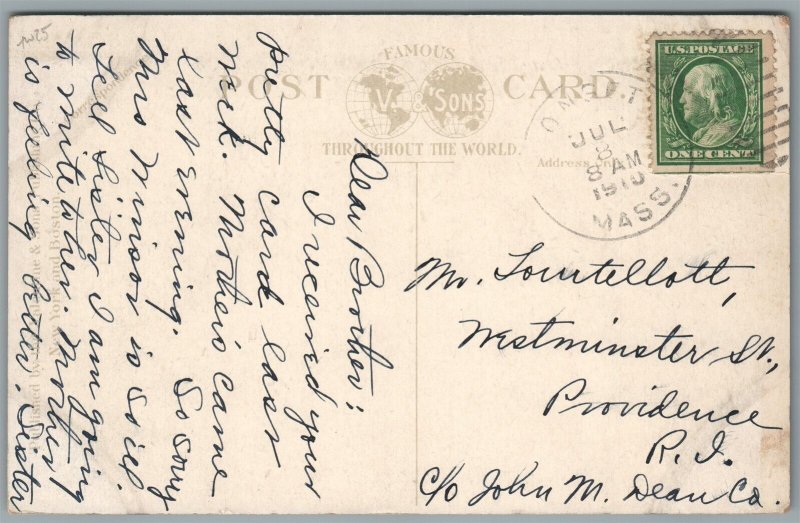 pw25
FAMOUS
POST CARD
V. & SONS
THROUGHOUT THE WORLD.
Address Only
U.S. POSTAGE
ONE CENT
ONSET
JUL
8
8 AM
1910
MASS.
Dear Brother:
I received your
pretty card last
week. Mother's came
last evening. So sorry
Mrs Minsor is so ill
Tell Sister I am going
to write to her. Mother
is feeling better. Sister
Mr. Tourtellott,
Westminster St.,
Providence
R. I.
c/o John M. Dean Co.
Published by & Sons
New York and Boston